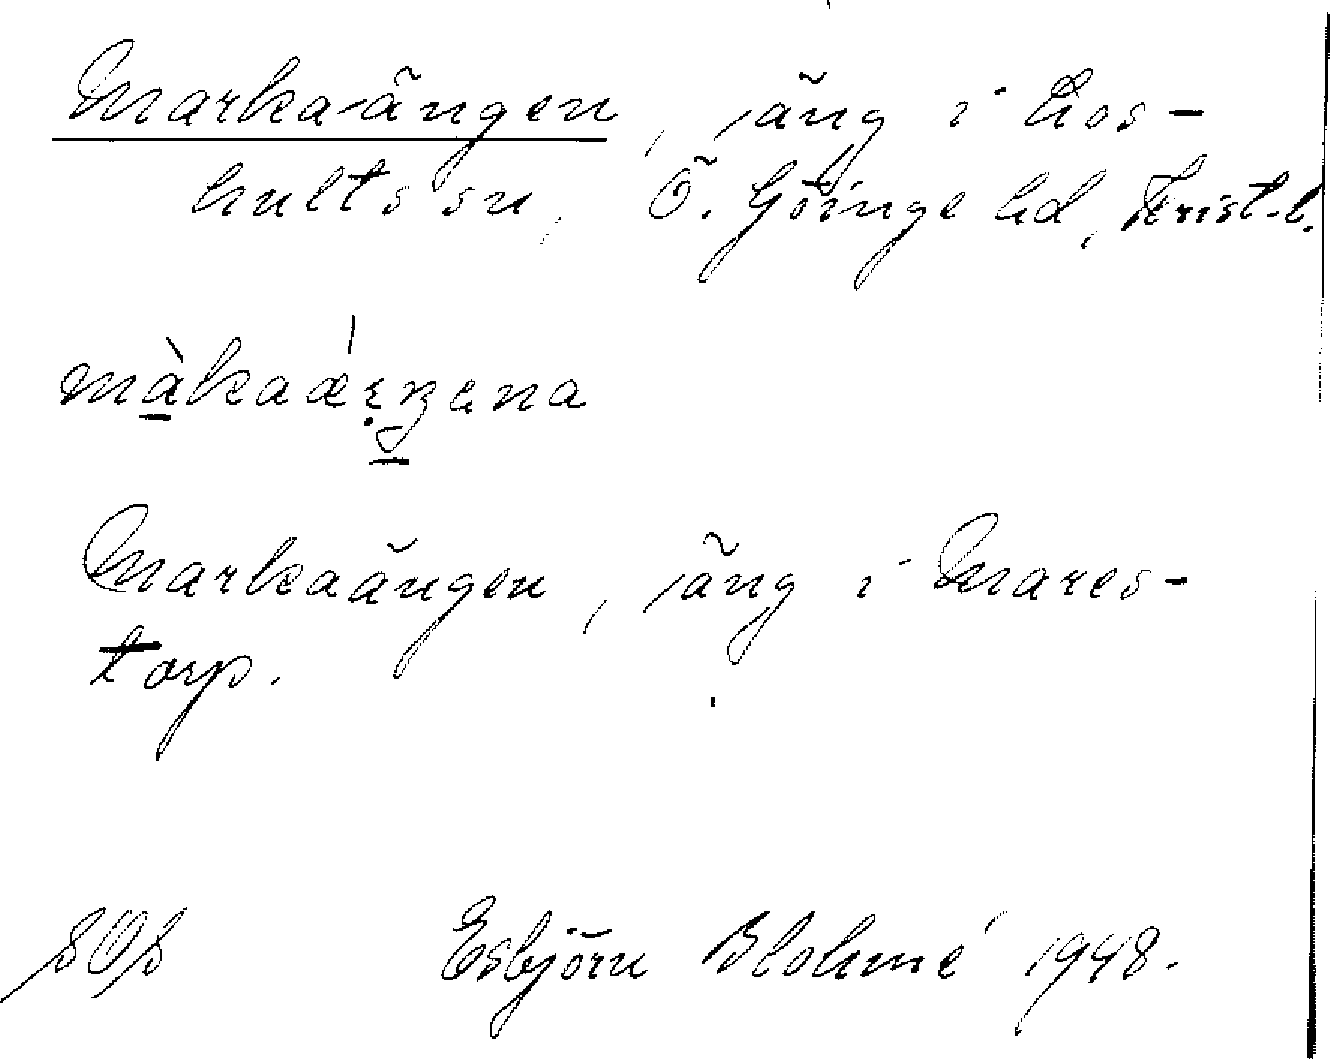 Marka-ängen, äng i Los-
hults sn, Ö. Göinge hd, Krist. l.
Markaängen, äng i Mares-
torp.
Esbjörn Blohmé 1948.